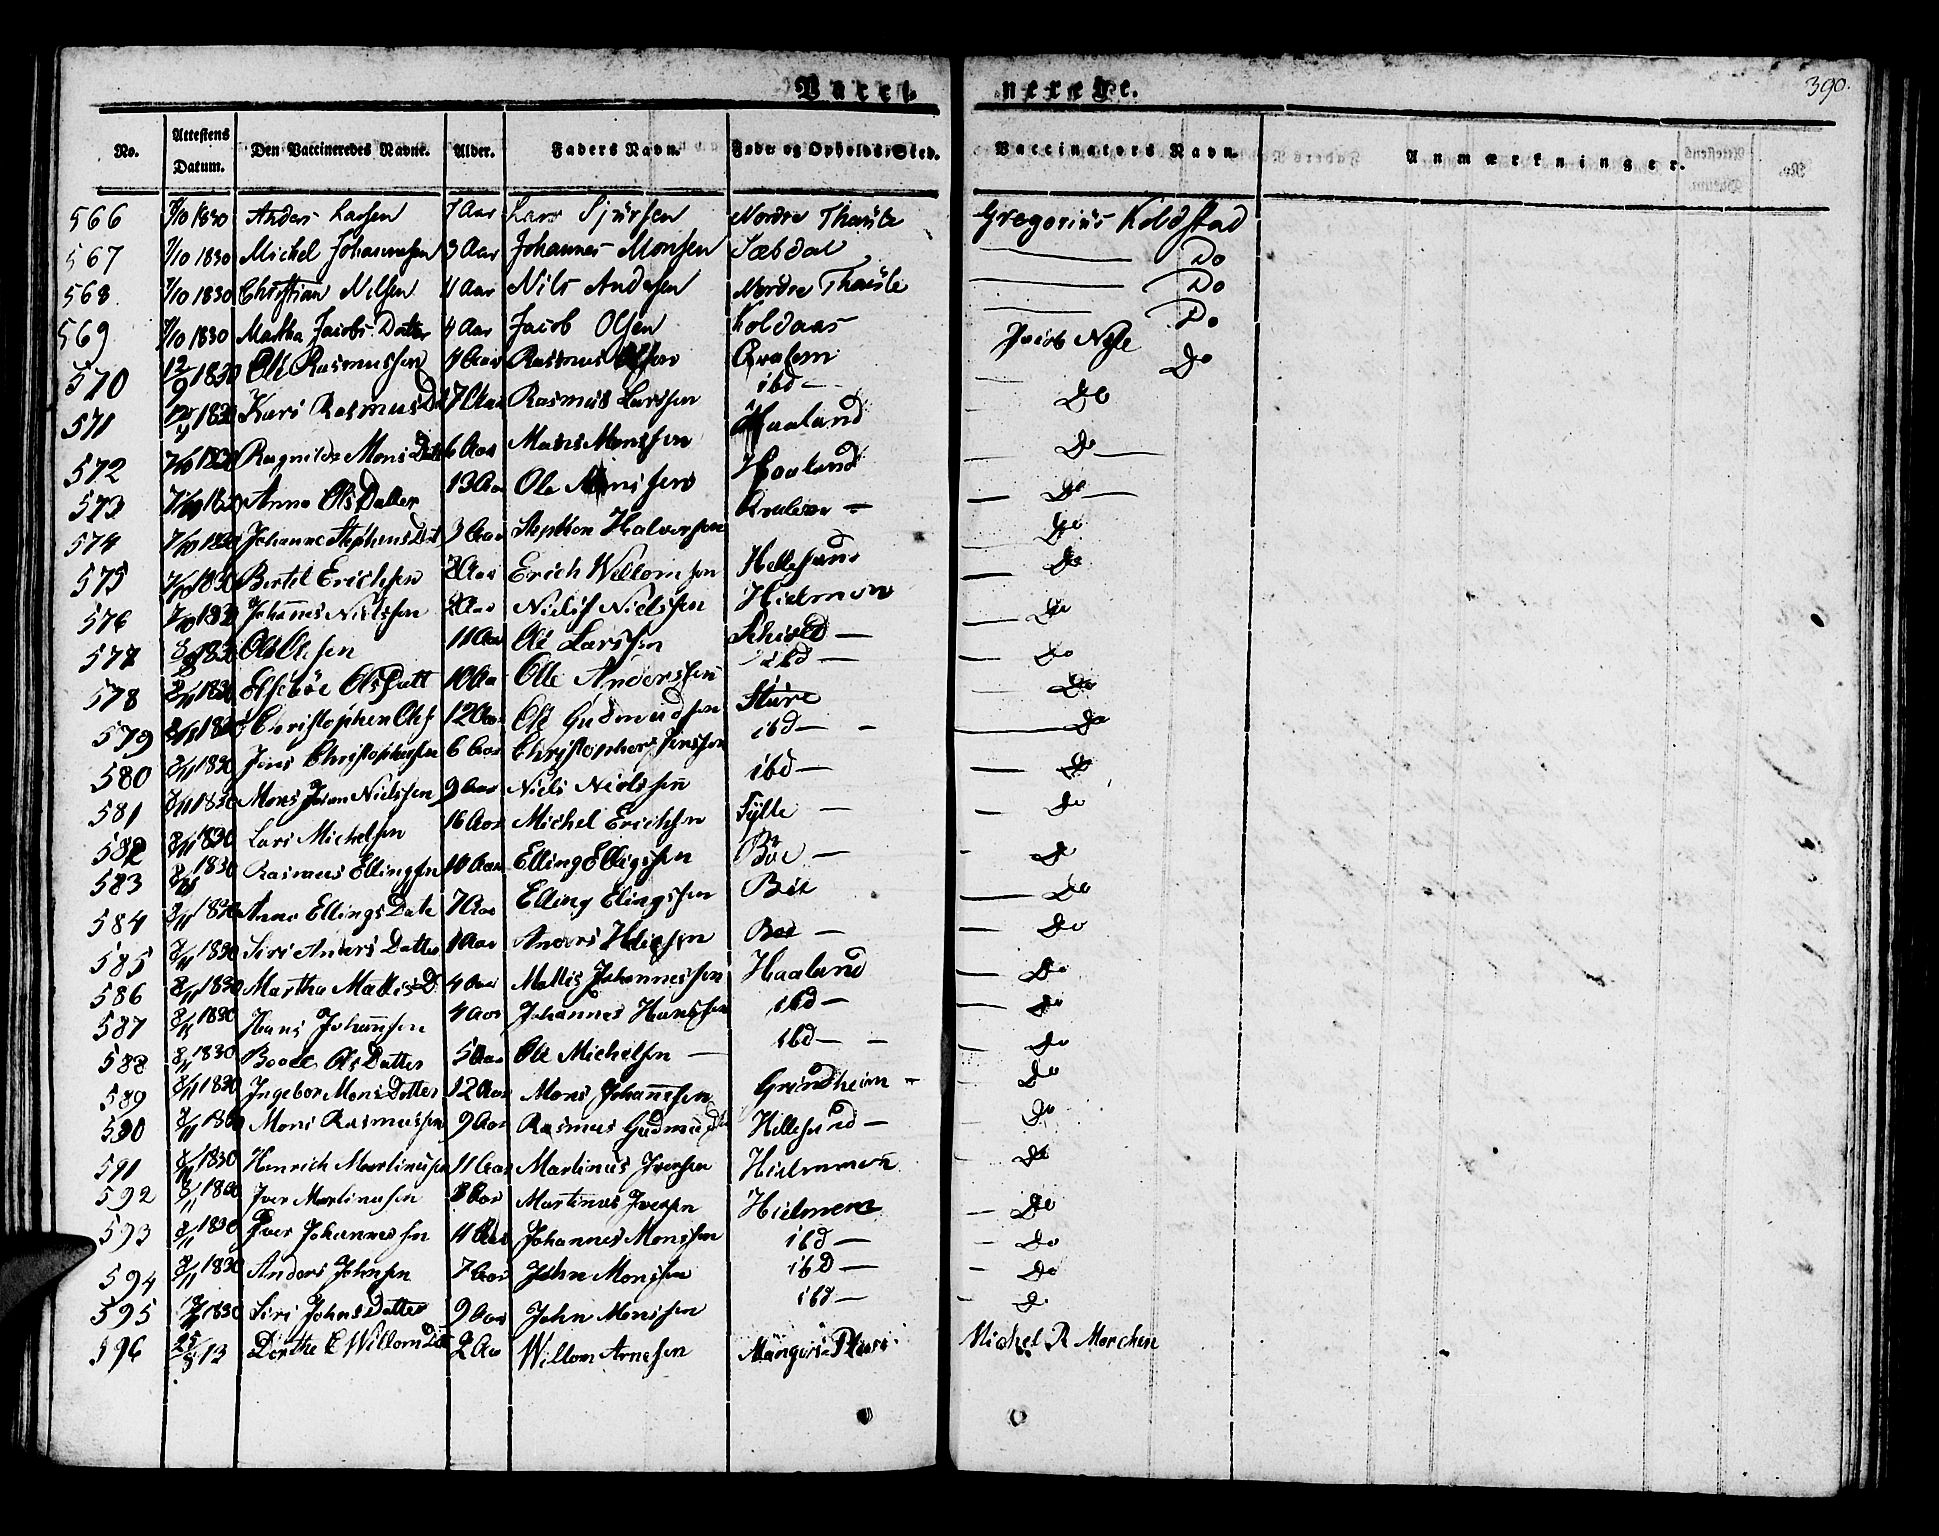 Vacci nerede. 390.
No. Attestens Datum. Den Vaccineredes Navne. Alder. Faders Navn. Føde og Opholds-Sted. Vaccinators Navn. Anmærkninger.
566 7/10 1830 Anders Larsen 7 Aar Lars Sjursen Nordre Thausle Gregorius Koldstad
567 7/10 1830 Michel Johannesen 3 Aar Johannes Monsen Sæbdal — Do
568 7/10 1830 Christian Nilsen 11 Aar Nils Andersen Nordre Thausle — Do
569 7/10 1830 Martha Jacobs Datter 4 Aar Jacob Olsen Koldaas — Do
570 12/9 1830 Ole Rasmussen 4 Aar Rasmus Qvalem Jacob — Do
571 1830 Kari Rasmus D 7 Aar Rasmus Larssen ibd — Do
572 7/10 1830 Ragnilde Mons Datt 6 Aar Mons Monssen Haaland — Do
573 7/10 1830 Anna Ols Datter 13 Aar Ole Monssen Haaland — Do
574 7/10 1830 Johanne Stephens Dat 3 Aar Stephen Halversen Qvalem — Do
575 7/10 1830 Bertel Erichsen 2 Aar Erich Willomsen Hellesund — Do
576 1830 Johannes Nielssen 2 Aar Niels Nielssen Hielmen — Do
577 1830 Ole Olsen 11 Aar Ole Larssen — Do
578 2/11 1830 Ols Datt 10 Aar Olle Anderssen ibd — Do
579 2/11 1830 Christophen Ols 12 Aar Ole Gudmudsen Sture — Do
580 2/11 1830 Jens Christophersen 6 Aar Christophers Jenssen ibd — Do
581 2/11 1830 Mons Johan Nielssen 9 Aar Niels Nielssen ibd — Do
582 8/11 1830 Lars Michelsen 16 Aar Michel Erichsen Tylte — Do
583 8/11 1830 Rasmus Ellingsen 10 Aar Elling Elligssen Böe — Do
584 8/11 1830 Anne Ellings Date 7 Aar Elling Elingssen Böe — Do
585 8/11 1830 Siri Anders Datter 1 Aar Anders Boe — Do
586 8/11 1830 Martha Mattis D. 4 Aar Mattis Johannessen Haaland — Do
587 8/11 1830 Hans Johanssen 4 Aar Johannes Hanssen ibd — Do
588 8/11 1830 Boeel Ols Datter 5 Aar Ole Michelsen — ibd — Do
589 8/11 1830 Ingebor Mons Datter 12 Aar Mons Johansen Grindheim — Do
590 8/11 1830 Mons Rasmussen 9 Aar Rasmus Gudmund Hillesund — Do
591 8/11 1830 Henrich Martinussen 11 Aar Martinus Iversen Hielmmen — Do
592 8/11 1830 Iver Martinusen 8 Aar Martinus Iversen Hielmen — Do
593 8/11 1830 Iver Johannessen 11 Aar Johannes Monssen ibd — Do
594 8/11 1830 Anders Johnsen 7 Aar John Monssen ibd — Do
595 1830 Siri Johns Datter 9 Aar John Monssen ibd — Do
596 25/8 13 Dorthe E Willom Dat 2 Aar Willom Arnesen Mangers Michel R Morchen